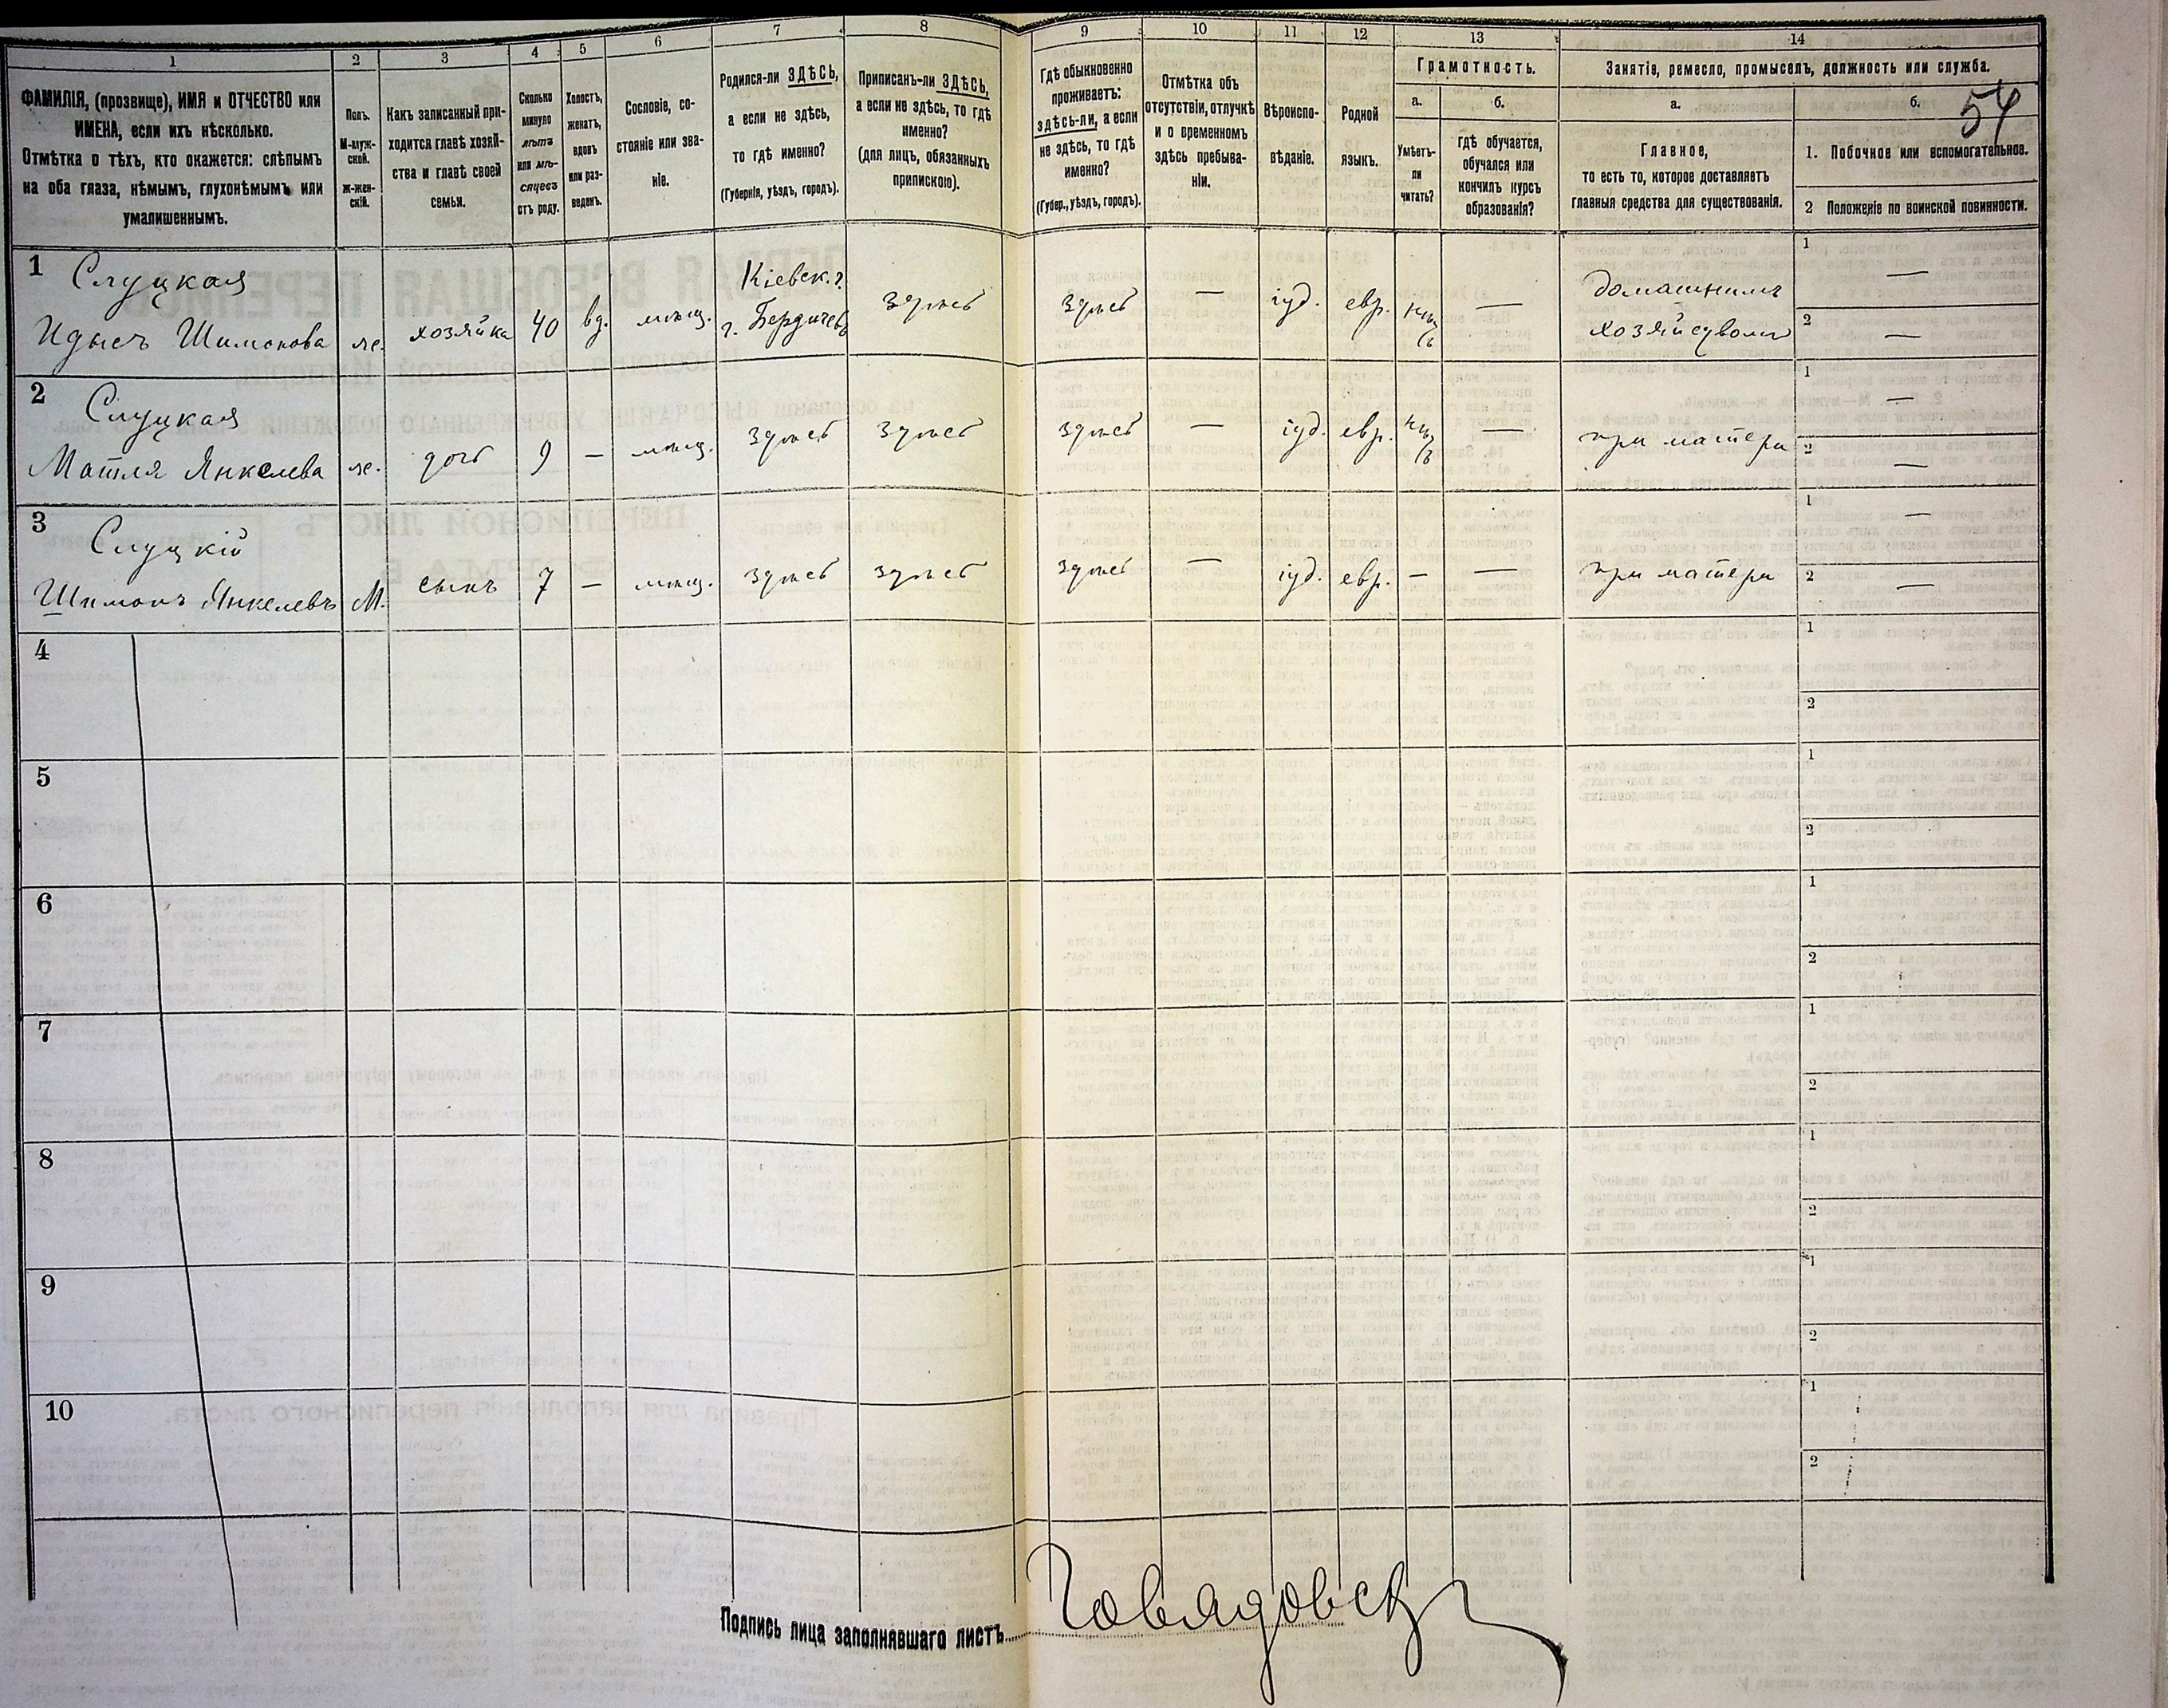 1
2
3
4
5
6
7
8
9
10
11
12
13
14
ФАМИЛІЯ, (прозвище), ИМЯ и ОТЧЕСТВО или
ИМЕНА, если ихъ нѣсколько.
Отмѣтка о тѣхъ, кто окажется: слѣпымъ
на оба глаза, нѣмымъ, глухонѣмымъ или
умалишеннымъ.
Полъ.
М-муж-
ской.
ж-жен-
скій.
Какъ записанный при-
ходится главѣ хозяй-
ства и главѣ своей
семьи.
Сколько
минуло
лѣтъ
или мѣ-
сяцевъ
отъ роду.
Холостъ,
женатъ,
вдовъ
или раз-
веденъ.
Сословіе, со-
стояніе или зва-
ніе.
Родился-ли ЗДѢСЬ,
а если не здѣсь,
то гдѣ именно?
(Губернія, уѣздъ, городъ).
Приписанъ-ли ЗДѢСЬ,
а если не здѣсь, то гдѣ
именно?
(для лицъ, обязанныхъ
припискою).
Гдѣ обыкновенно
проживаетъ:
здѣсь-ли, а если
не здѣсь, то гдѣ
именно?
(Губер., уѣздъ, городъ).
Отмѣтка объ
отсутствіи, отлучкѣ
и о временномъ
здѣсь пребыва-
ніи.
Вѣроиспо-
вѣданіе.
Родной
языкъ.
Грамотность.
а.
Умѣетъ-
ли
читать?
б.
гдѣ обучается,
обучался или
кончилъ курсъ
образованія?
Занятіе, ремесло, промыселъ, должность или служба.
а.
Главное,
то есть то, которое доставляетъ
главныя средства для существованія.
б.
54
1. Побочное или вспомогательное.
2 Положеніе по воинской повинности.
1 Слуцкая
Идысъ Шимонова же. хозяйка 40 вд. мѣщ. Кіевск. г.
г. Бердичевъ здѣсь здѣсь — іуд. евр. нѣтъ — домашнимъ
хозяйствомъ 1 —
2 —
2 Слуцкая
Матля Янкелева же. дочь 9 — мѣщ. здѣсь здѣсь здѣсь — іуд. евр. нѣтъ — при матери 1 —
2 —
3 Слуцкій
Шимонъ Янкелевъ М. сынъ 7 — мѣщ. здѣсь здѣсь здѣсь — іуд. евр. — — при матери 1 —
2 —
4 1
2
5 1
2
6 1
2
7 1
2
8 1
2
9 1
2
10 1
2
Подпись лица заполнявшаго листъ